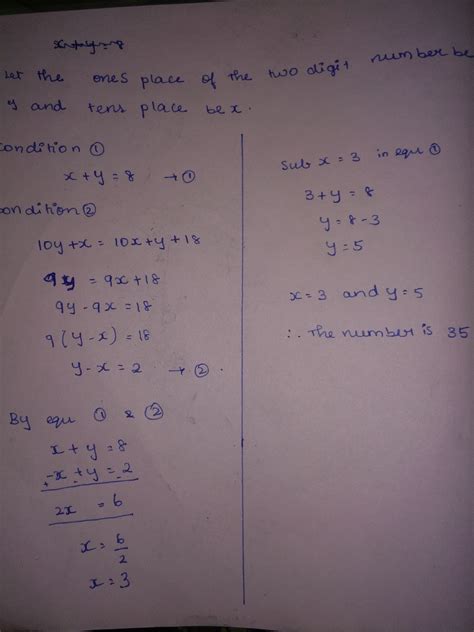 x+y=8
Let the ones place of the two digit number be
y and tens place be x.
Condition ①
x+y=8 → ①
Condition ②
10y+x = 10x+y+18
9y = 9x+18
9y-9x=18
9(y-x)=18
y-x=2 → ②.
By equ ① & ②
x+y=8
-x+y=2
+ - -
2x = 6
x=6/2
x=3
Sub x=3 in equ ①
3+y=8
y=8-3
y=5
x=3 and y=5
∴ The number is 35